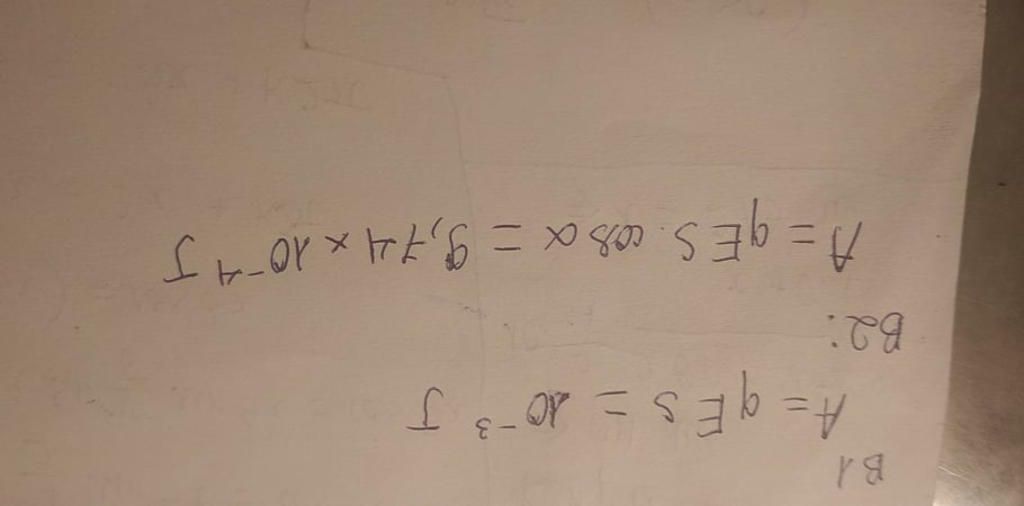 B1
A = qES = 10⁻³ J
B2:
A = qES. cosα = 9,74 × 10⁻⁴ J